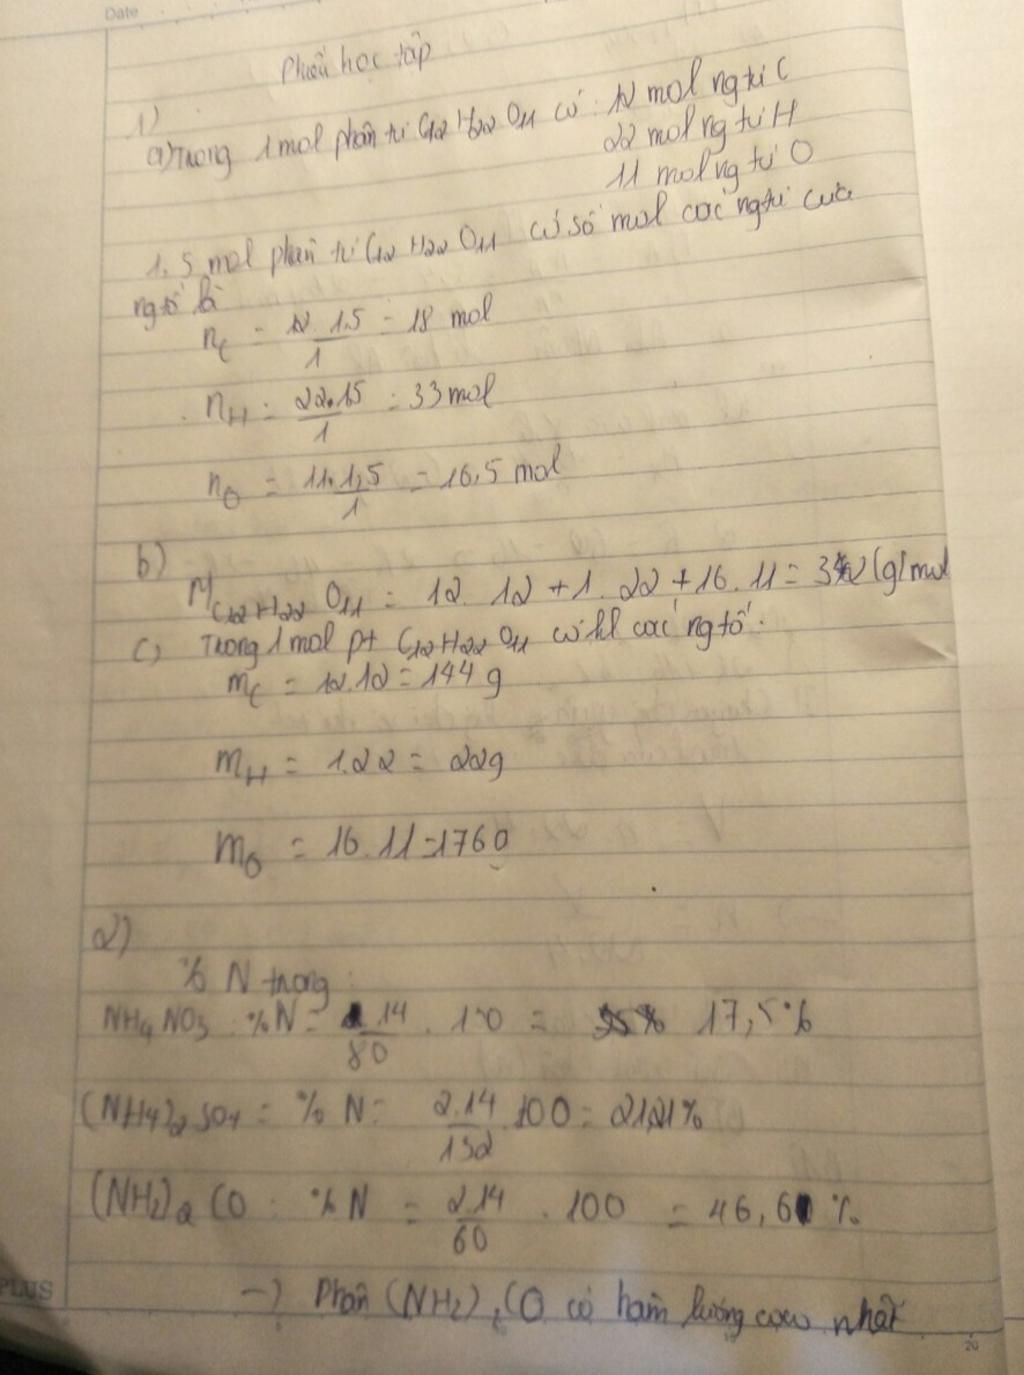 Date
Phiếu học tập
1)
a) Trong 1 mol phân tử C12H22O11 có: 12 mol ng tử C
22 mol ng tử H
11 mol ng tử O
1,5 mol phân tử C12H22O11 có số mol các ng tử của
ng tố là
nC = 12.1,5/1 = 18 mol
nH = 22.1,5/1 = 33 mol
nO = 11.1,5/1 = 16,5 mol
b)
MC12H22O11 = 12.12+1.22+16.11 = 342 (g/mol
c) Trong 1 mol pt C12H22O11 có kl các ng tố:
mC = 12.12 = 144 g
mH = 1.22 = 22g
mO = 16.11 = 176g
2)
% N trong:
NH4NO3: %N = 14/80 . 100 = 17,5%
(NH4)2SO4 = %N = 2.14/132 .100 = 21,21%
(NH2)2CO: %N = 2.14/60 . 100 = 46,6 %
→ Phân (NH2)2CO có hàm lượng cao nhất
PLUS
20